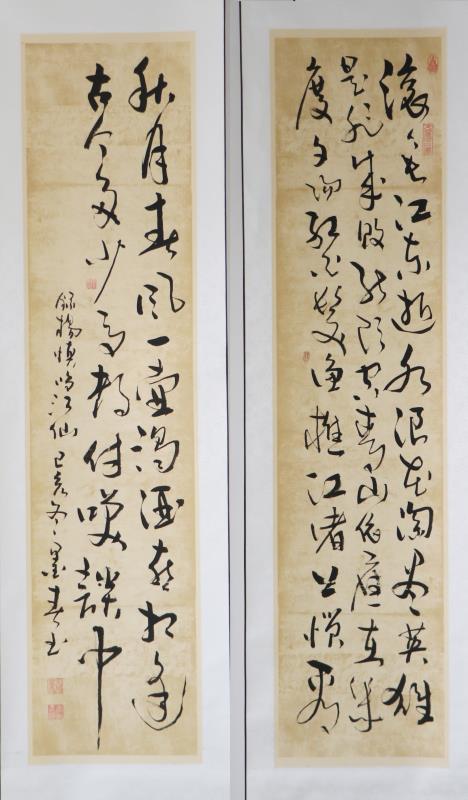 滚々長江东逝水浪花淘尽英雄
是非成败转头空青山依舊在幾
度夕阳红白髮渔樵江渚上惯看
秋月春风一壶濁酒喜相逢
古今多少事都付笑談中
録楊慎临江仙 己亥冬 墨春书